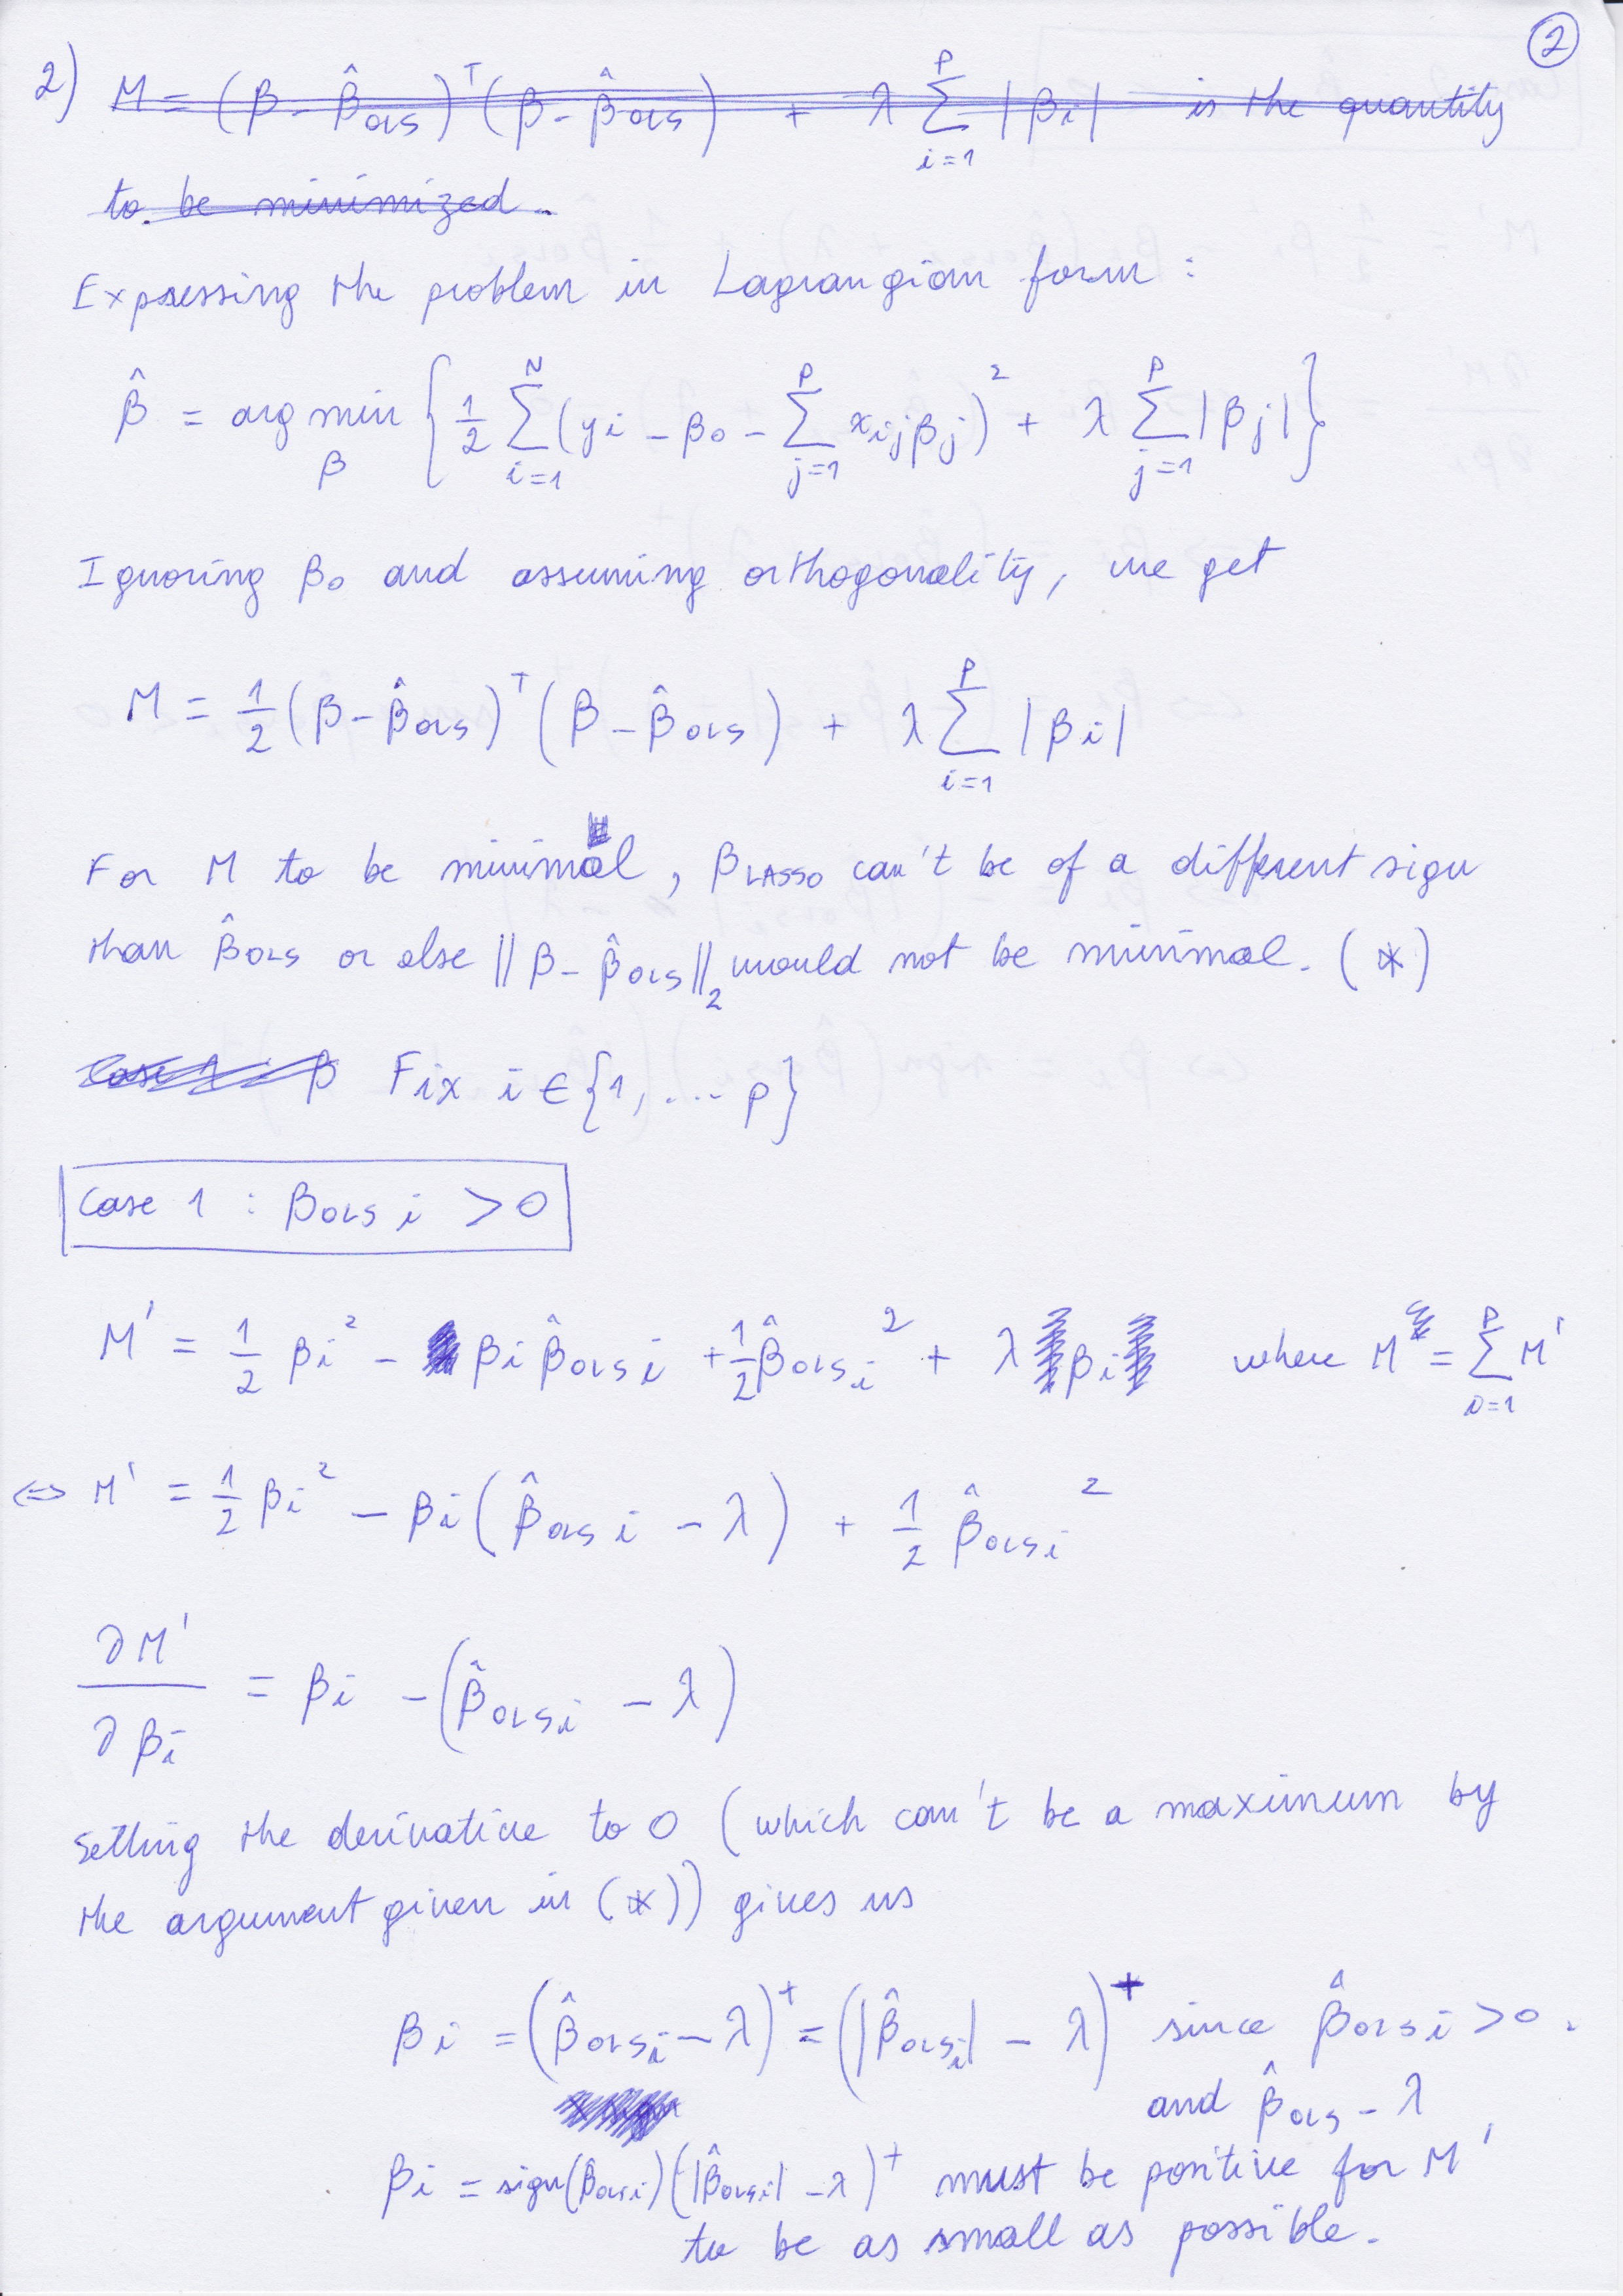 ②
2) M = (β - β̂_OLS)^T (β - β̂_OLS) + λ Σ_{i=1}^{P} |β_i| is the quantity
to be minimized.
Expressing the problem in Lagrangian form :
β̂ = arg min_β { 1/2 Σ_{i=1}^{N} (y_i - β_0 - Σ_{j=1}^{P} x_{ij} β_j)^2 + λ Σ_{j=1}^{P} |β_j| }
Ignoring β_0 and assuming orthogonality, we get
M = 1/2 (β - β̂_OLS)^T (β - β̂_OLS) + λ Σ_{i=1}^{P} |β_i|
For M to be minimal, β_LASSO can't be of a different sign
than β̂_OLS or else ||β - β̂_OLS||_2 would not be minimal. (*)
Case 1 : β Fix i ∈ {1, ... p}
Case 1 : β_OLS i > 0
M' = 1/2 β_i^2 - β_i β̂_OLS i + 1/2 β̂_OLS i^2 + λ β_i where M = Σ_{i=1}^{P} M'
<=> M' = 1/2 β_i^2 - β_i (β̂_OLS i - λ) + 1/2 β̂_OLS i^2
∂M'/∂β_i = β_i - (β̂_OLS i - λ)
Setting the derivative to 0 (which can't be a maximum by
the argument given in (*)) gives us
β_i = (β̂_OLS i - λ)^+ = (|β̂_OLS i| - λ)^+ since β̂_OLS i > 0.
and β̂_OLS - λ
β_i = sign(β̂_OLS i) (|β̂_OLS i| - λ)^+ must be positive for M'
to be as small as possible.